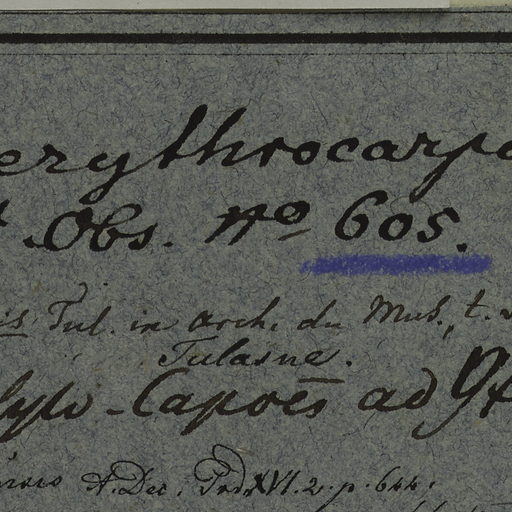 erythrocarpa
Obs. No 605.
is Tul. in arch. du Mus., t.
Tulasne.
Capoës ad
A. Dec. Prdr. XVI. 2. p. 644.